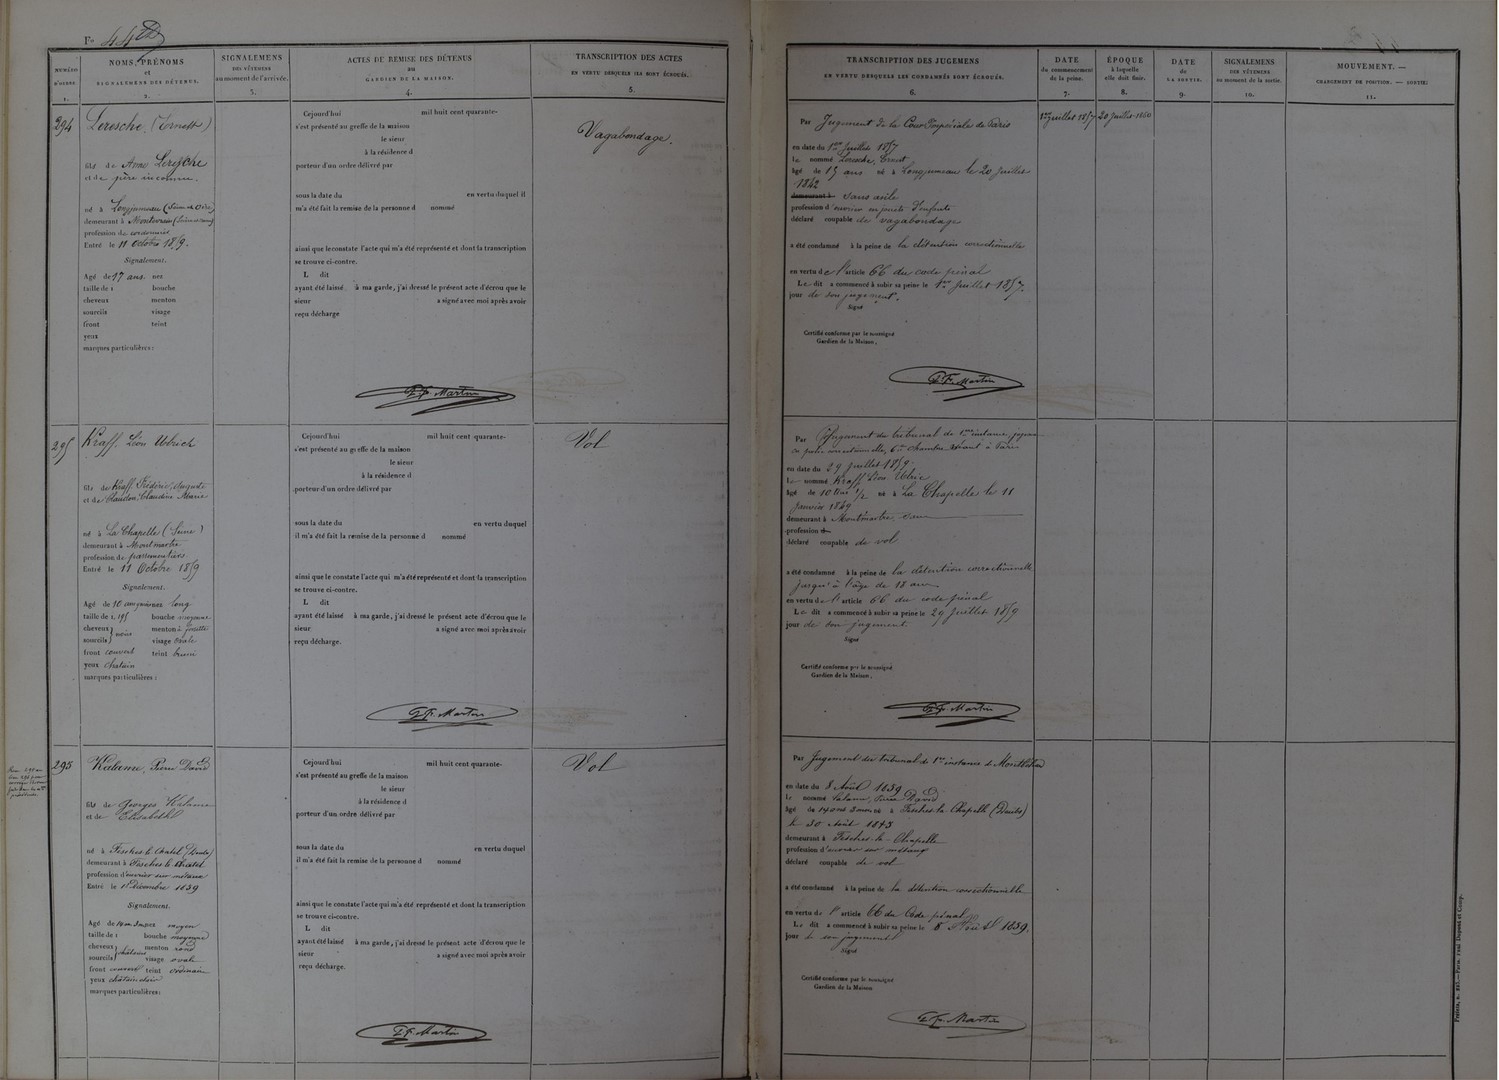 Fo 44
NUMÉRO D'ORDRE 1.
NOMS, PRÉNOMS et SIGNALEMENS DES DÉTENUS. 2.
SIGNALEMENS DES VÊTEMENS au moment de l'arrivée. 3.
ACTES DE REMISE DES DÉTENUS au GARDIEN DE LA MAISON. 4.
TRANSCRIPTION DES ACTES EN VERTU DESQUELS ILS SONT ÉCROUÉS. 5.
TRANSCRIPTION DES JUGEMENS EN VERTU DESQUELS LES CONDAMNÉS SONT ÉCROUÉS. 6.
DATE du commencement de la peine. 7.
ÉPOQUE à laquelle elle doit finir. 8.
DATE de LA SORTIE. 9.
SIGNALEMENS DES VÊTEMENS au moment de la sortie. 10.
MOUVEMENT. — CHANGEMENT DE POSITION. — SORTIE. 11.
294 Leresche, (Ernest)
fils de Anne Leresche
et de père inconnu.
né à Longjumeau (Seine et Oise)
demeurant à
profession de cordonnier
Entré le 11 Octobre 1859.
Signalement.
Agé de 17 ans. nez
taille de 1 bouche
cheveux menton
sourcils visage
front teint
yeux
marques particulières :
Cejourd'hui mil huit cent quarante-
s'est présenté au greffe de la maison
le sieur
à la résidence d
porteur d'un ordre délivré par
sous la date du en vertu duquel il
m'a été fait la remise de la personne d nommé
ainsi que le constate l'acte qui m'a été représenté et dont la transcription
se trouve ci-contre.
L dit
ayant été laissé à ma garde, j'ai dressé le présent acte d'écrou que le
sieur a signé avec moi après avoir
reçu décharge
Martin
Vagabondage.
Par Jugement de la Cour Impériale de Paris
en date du 1er Juillet 1857
le nommé Leresche, Ernest
âgé de 15 ans né à Longjumeau le 20 Juillet
1842
demeurant à sans asile
profession d'ouvrier en jouets d'enfants
déclaré coupable de vagabondage
a été condamné à la peine de la détention correctionnelle
en vertu de l'article 66 du code pénal
Le dit a commencé à subir sa peine le 1er Juillet 1857.
jour de son jugement.
Signé
Certifié conforme par le soussigné
Gardien de la Maison,
Martin
1er Juillet 1857
20 Juillet 1860
295 Kraff, Léon Ulrich
fils de Kraff Frédéric, Auguste
et de Claudon, Claudine Marie
né à La Chapelle (Seine)
demeurant à Montmartre
profession de passementière
Entré le 11 Octobre 1859
Signalement.
Agé de 10 ans nez long
taille de 1, 195 bouche moyenne
cheveux } noirs menton à fossette
sourcils } visage ovale
front couvert teint brun
yeux chatain
marques particulières :
Cejourd'hui mil huit cent quarante-
s'est présenté au greffe de la maison
le sieur
à la résidence d
porteur d'un ordre délivré par
sous la date du en vertu duquel
il m'a été fait la remise de la personne d nommé
ainsi que le constate l'acte qui m'a été représenté et dont la transcription
se trouve ci-contre.
L dit
ayant été laissé à ma garde, j'ai dressé le présent acte d'écrou que le
sieur a signé avec moi après avoir
reçu décharge.
Martin
Vol
Par Jugement du tribunal de 1ère instance, jugeant
en police correctionnelle, 6e chambre séant à Paris
en date du 29 Juillet 1859
le nommé Kraff Léon Ulric
âgé de 10 ans 1/2 né à La Chapelle le 11
Janvier 1849
demeurant à Montmartre, sans
profession
déclaré coupable de vol
a été condamné à la peine de la détention correctionnelle
jusqu'à l'âge de 18 ans
en vertu de l'article 66 du code pénal
Le dit a commencé à subir sa peine le 29 Juillet 1859
jour de son jugement.
Signé
Certifié conforme par le soussigné
Gardien de la Maison,
Martin
295 Kalame, Pierre David
fils de Georges Kalame
et de Elisabeth
né à Fesches-le-Chatel (Doubs)
demeurant à Fesches-le-Chatel
profession d'ouvrier sur métaux
Entré le 1 Décembre 1859
Signalement.
Agé de 14 ans 3 mois nez moyen
taille de 1 bouche moyenne
cheveux } chatains menton rond
sourcils } visage ovale
front couvert teint ordinaire
yeux chatain clair
marques particulières :
Cejourd'hui mil huit cent quarante-
s'est présenté au greffe de la maison
le sieur
à la résidence d
porteur d'un ordre délivré par
sous la date du en vertu duquel
il m'a été fait la remise de la personne d nommé
ainsi que le constate l'acte qui m'a été représenté et dont la transcription
se trouve ci-contre.
L dit
ayant été laissé à ma garde, j'ai dressé le présent acte d'écrou que le
sieur a signé avec moi après avoir
reçu décharge.
Martin
Vol
Par Jugement du tribunal de 1re instance de Montbéliard
en date du 8 Août 1859
le nommé Kalame, Pierre David
âgé de 14 ans né à Fesches-la-Chapelle (Doubs)
le 30 Août 1845
demeurant à Fesches-la-Chapelle
profession d'ouvrier sur métaux
déclaré coupable de vol
a été condamné à la peine de la détention correctionnelle
en vertu de l'article 66 du Code pénal
Le dit a commencé à subir sa peine le 8 Août 1859.
jour de son jugement
Signé
Certifié conforme par le soussigné
Gardien de la Maison
Martin